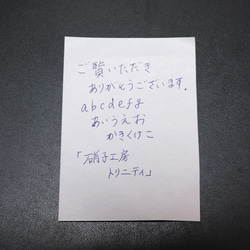 ご覧いただき
ありがとうございます.
abcdefg
あいうえお
かきくけこ
「硝子工房
トリニティ」